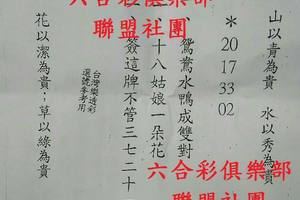 六合彩俱樂部
聯盟社團
山以青為貴 水以秀為貴
*20 17 33 02
鴛鴦水鴨成雙對
十八姑娘一朵花
簽這牌不管三七二十
台灣樂透彩
選號參考用
花以潔為貴；草以綠為貴
六合彩俱樂部
聯盟社團